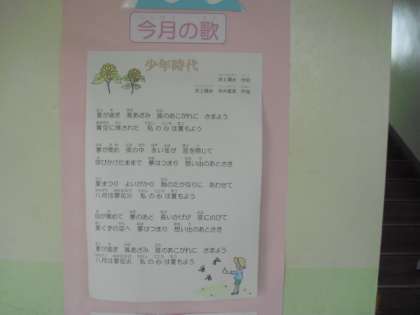 今月の歌
少年時代
井上陽水 作詞
井上陽水 平井夏美 作曲
夏が過ぎ 風あざみ 誰のあこがれに さまよう
青空に残された 私の心は夏もよう
夢が覚め 夜の中 永い冬が 窓を閉じて
呼びかけたままで 夢はつまり 想い出のあとさき
夏まつり 宵かがり 胸のたかなりに あわせて
八月は夢花火 私の心は夏もよう
目が覚めて 夢のあと 長い影が 夜にのびて
星くずの空へ 夢はつまり 想い出のあとさき
夏が過ぎ 風あざみ 誰のあこがれに さまよう
八月は夢花火 私の心は夏もよう